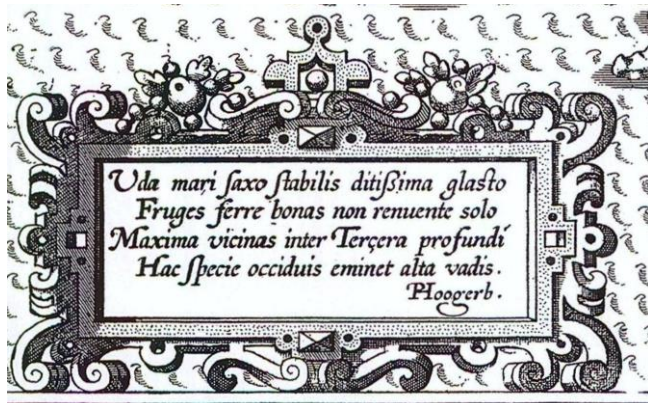 Uda mari ſaxo ſtabilis ditißima glaſto
Fruges ferre bonas non renuente solo
Maxima vicinas inter Terçera profundi
Hac ſpecie occiduis eminet alta vadis.
PHoogerb.